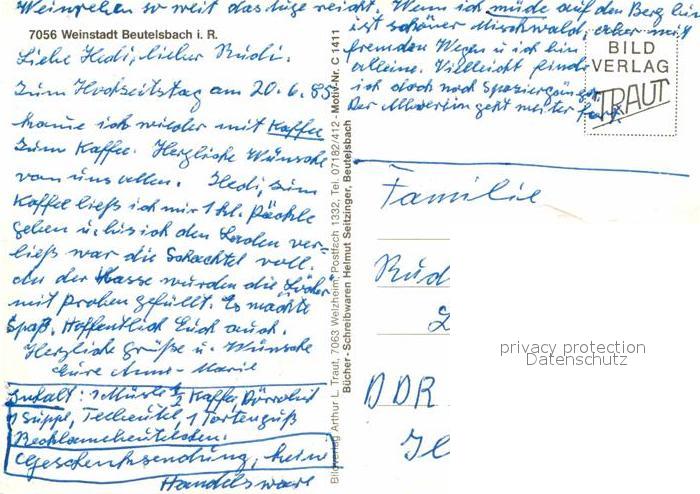 Weinreben so weit das Auge reicht. Wenn ich müde auf den Berg bin
ist schöner Mischwald, aber mit
fremden Wegen u. ich bin
alleine. Vielleicht finde
ich doch noch Spaziergänger.
Der Allwertin geht weiter fort.
7056 Weinstadt Beutelsbach i. R.
Liebe Hedi, lieber Rudi.
Zum Hochzeitstag am 20.6.85
komme ich wieder mit Kaffee
zum Kaffee. Herzliche Wünsche
von uns allen. Hedi, zum
Kaffee ließ ich mir 1 kl. Päckle
geben u. bis ich den Laden ver-
ließ war die Schachtel voll.
An der Kasse wurden die "Löcher"
mit Proben gefüllt. Es machte
Spaß. Hoffentlich Euch auch.
Herzliche Grüße u. Wünsche
Eure Anne-Marie
Inhalt: 1 Müsle 1/2 Kaffee, Dörrobst
1 Suppe, Teebeutel, 1 Tortenguß
Reklamebeutelchen.
Geschenksendung, keine
Handelsware
Bildverlag Arthur L. Traut, 7063 Welzheim, Postfach 1332, Tel. 07182/412 - Motiv-Nr. C 1411
Bücher - Schreibwaren Helmut Seitzinger, Beutelsbach
BILD
VERLAG
TRAUT
Familie
Rud
DDR
privacy protection
Datenschutz